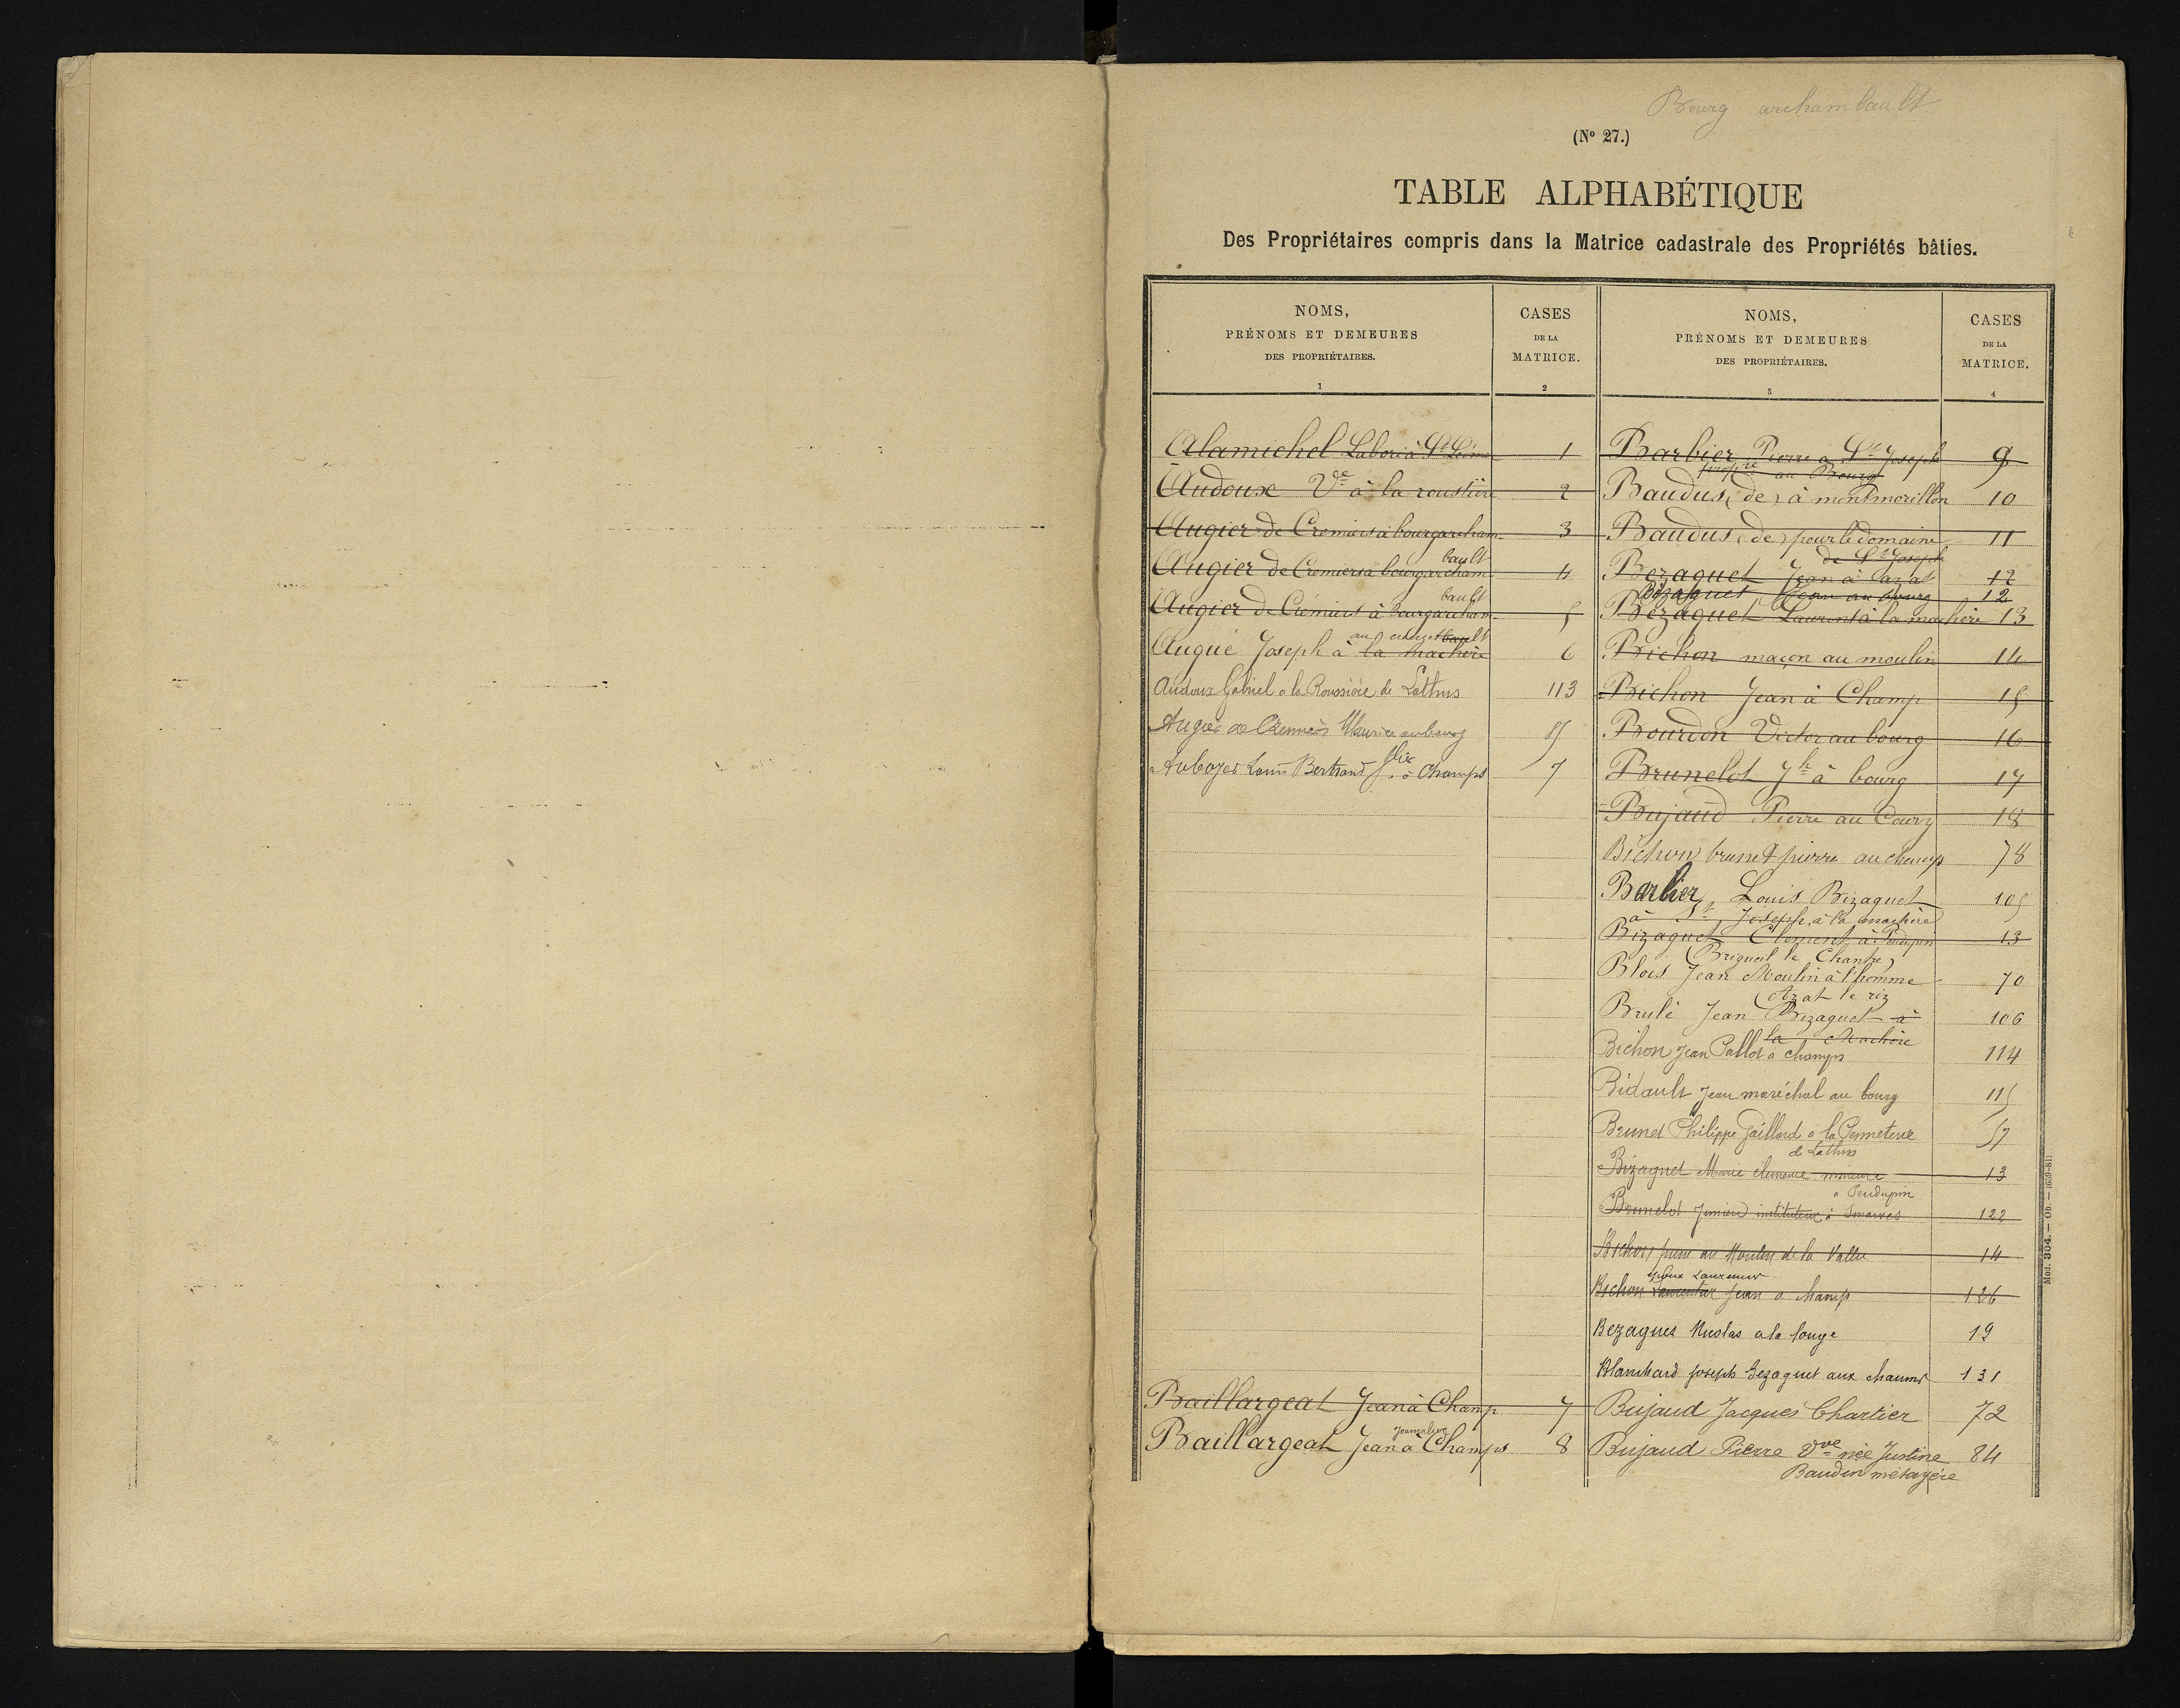 Bourg archambault
(Nº 27.)
TABLE ALPHABÉTIQUE
Des Propriétaires compris dans la Matrice cadastrale des Propriétés bâties.
NOMS,
PRÉNOMS ET DEMEURES
DES PROPRIÉTAIRES.
1
CASES
DE LA
MATRICE.
2
NOMS,
PRÉNOMS ET DEMEURES
DES PROPRIÉTAIRES.
3
CASES
DE LA
MATRICE.
4
Alamichel Labori à St 1
Audoux Vve à la roustière 2
Augier de Cremiers à bourgarcham- 3
bault
Augier de Cremiers à bourgarcham- 4
bault
Augier de Crémiers à bourgarcham- 5
bault
au
Augué Joseph à la machère 6
Audoux Gabriel à la Roussière de Lathus 113
Augier de Cremiers Maurice au bourg 85
Auboyer Louis Bertrand à Champs 7
Baillargeat Jean à Champ 7
journalier
Baillargeat Jean à Champs 8
Barbier Pierre à St Joseph 9
propre au Bourg
Baudus (de) à montmorillon 10
Baudus (de) pour le domaine 11
de St Joseph
Bezaguet Jean à azat 12
Bizaguet Jean au bourg 12
Bezaguet Laurent à la machère 13
Bichon maçon au moulin 14
Bichon Jean à Champ 15
Bourdon Victor au bourg 16
Brunelot Jh à bourg 17
Bujaud Pierre au bourg 18
Bichon brunet pierre au champ 78
Barbier Louis Bizaguet 105
à St Joseph, à la machère
Bizaguet Clement à Peudupin 13
(Brigueil le Chantre)
Blois Jean Moulin à l'homme 70
(Azat le riz
Brulé Jean Bizaguet à 106
la Machère
Bichon Jean Pallot à champs 114
Bidault Jean maréchal au bourg 115
Brunet Philippe Gaillard à la 57
de Lathus
Bizaguet Marie clemence mineure 13
à Peudupin
Brunelot Junien instituteur à Smarves 122
Bichon pierre au Moulin de la Vallee 14
Bichon Jean a champ 126
Bezagues Nicolas a la 19
Blanchard joseph bezaguet aux chaumes 131
Bujaud Jacques Chartier 72
Bujaud Pierre Vve née Justine 84
Baudin métayère
Mod. 304. — Ob. — (659-81)